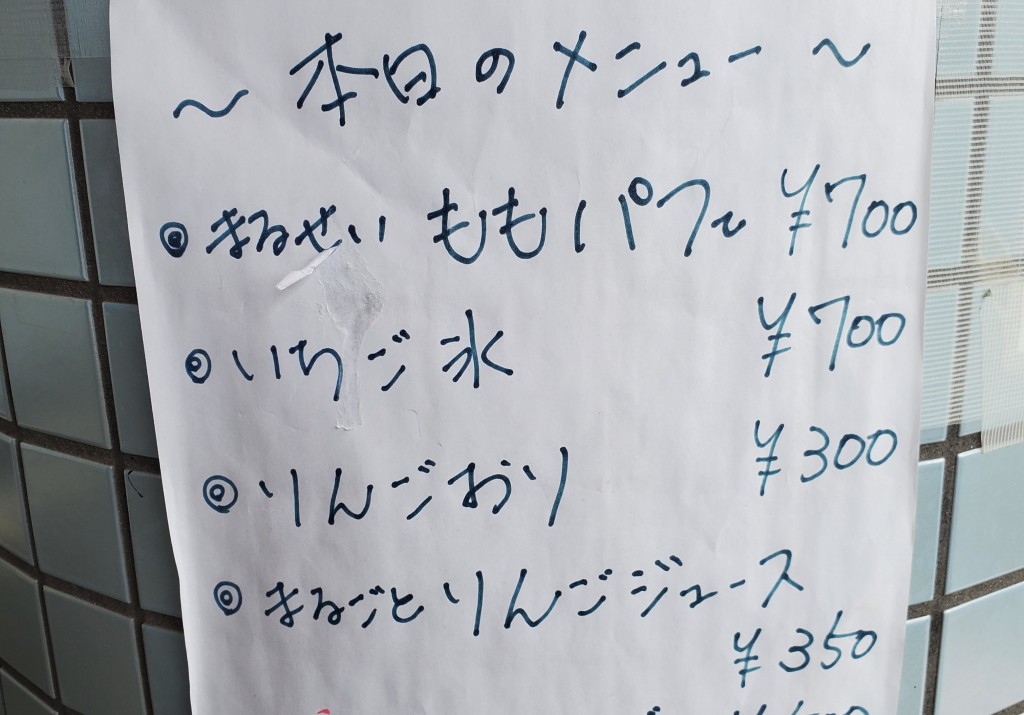 ～ 本日のメニュー ～
◎ まるせい ももパフェ ¥700
◎ いちご氷 ¥700
◎ りんごおり ¥300
◎ まるごとりんごジュース
¥350